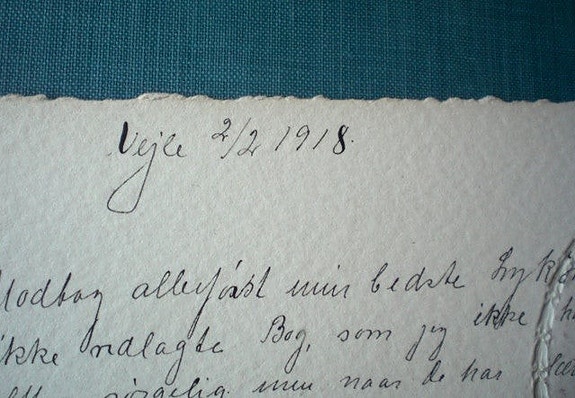 Vejle 2/2 1918.
Modtag allerførst min bedste Lykø
ikke indlagte Bog, som jeg ikke ha
sørgelig men naar de har